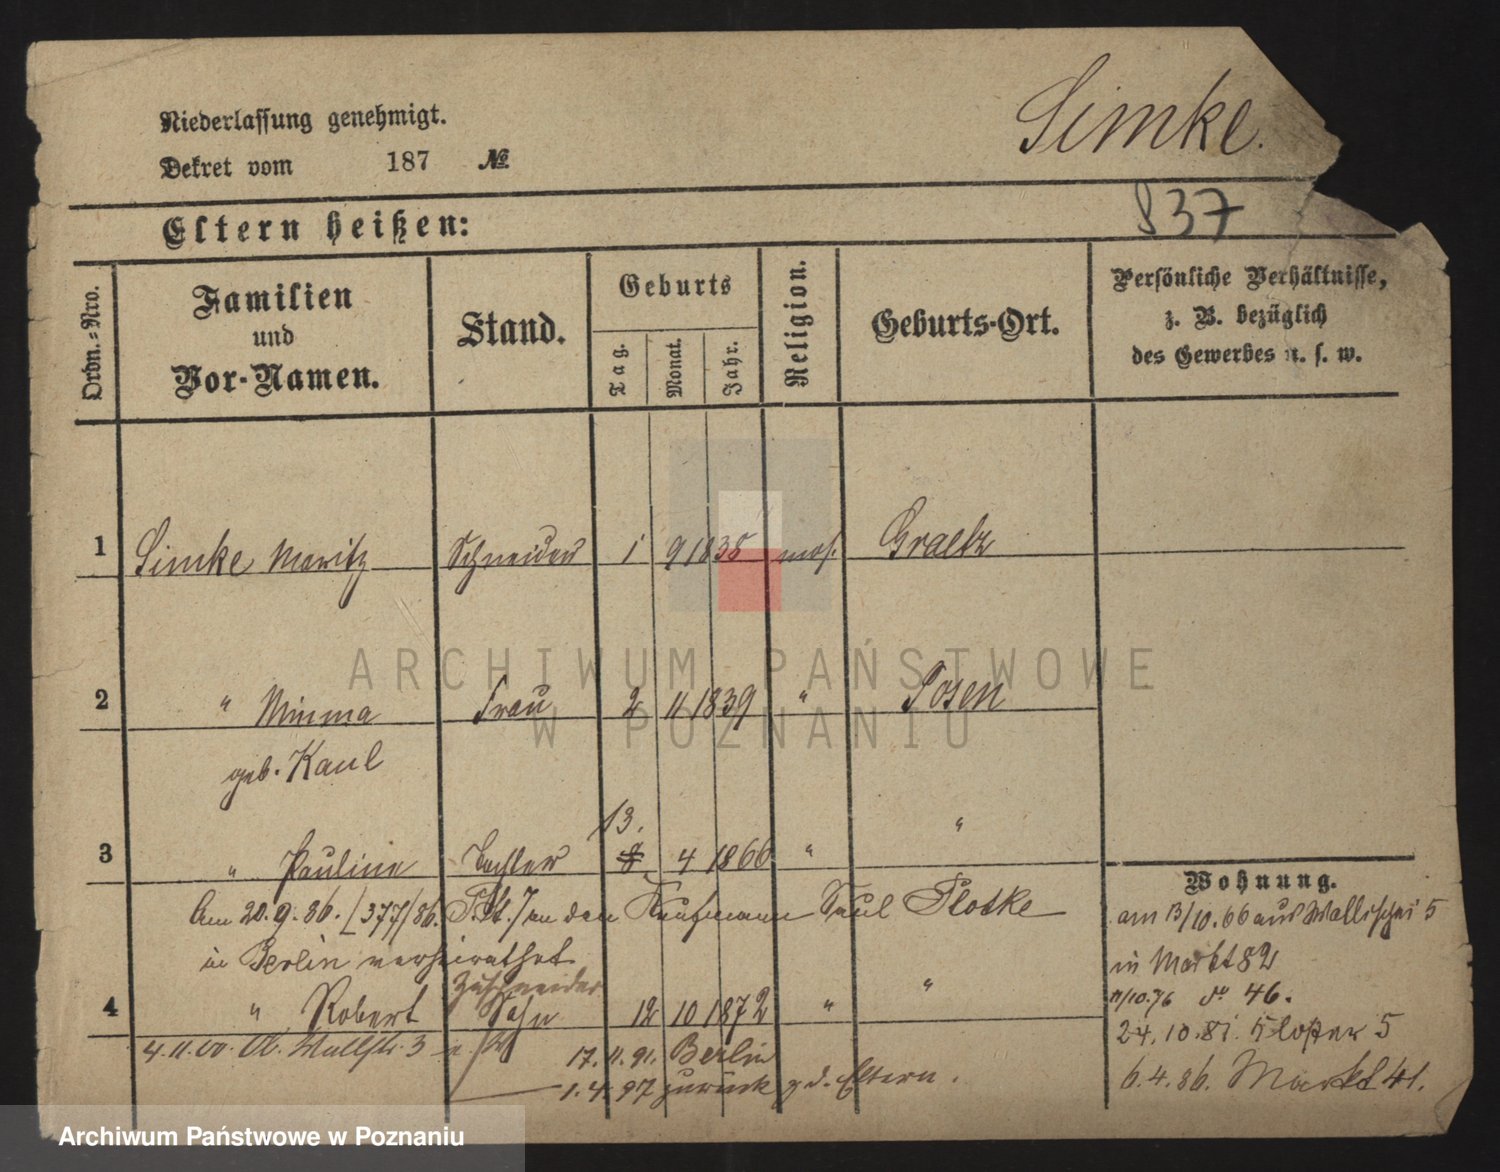 Niederlassung genehmigt.
Dekret vom 187 №
Simke.
837
Eltern heißen:
Ordn.-Nro.
Familien und Vor-Namen.
Stand.
Geburts
Tag.
Monat.
Jahr.
Religion.
Geburts-Ort.
Persönliche Verhältnisse,
z. B. bezüglich
des Gewerbes u. s. w.
1 Simke Moritz Schneider 1 9 1835 mos. Graetz
2 " Minma Frau 2 11 1839 " Posen
geb. Kaul
13.
3 " Pauline Tochter 8 4 1866 " "
Am 20.9.86. [377/86. St.] an den Kaufmann Saul Plotke
in Berlin verheirathet
Zuschneider
4 " Robert Sohn 12 10 1872 " "
4.11.00. Wallstr. 3
17.11.91. Berlin
1.4.97 zurück z. d. Eltern.
Wohnung.
am 13/10.66 aus Wallischei 5
in Markt 82
11/10.76 do 46.
24.10.81. Kloster 5
6.4.86. Markt 41.
ARCHIWUM PAŃSTWOWE
W POZNANIU
Archiwum Państwowe w Poznaniu